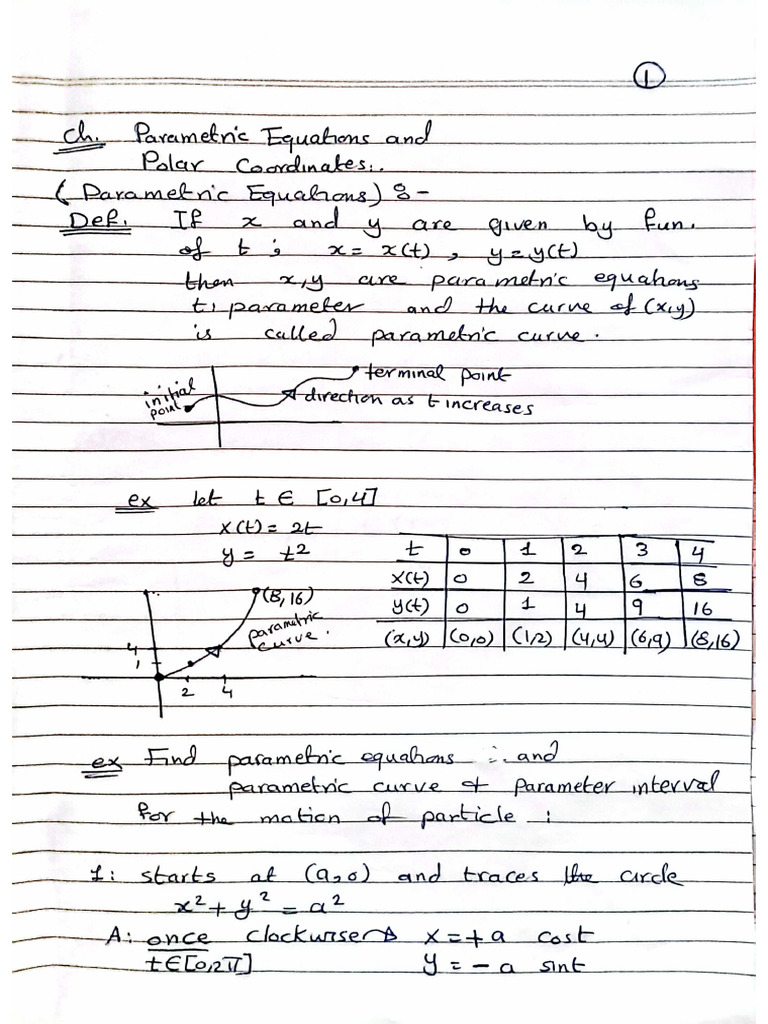 ①
Ch. Parametric Equations and
Polar Coordinates:.
(Parametric Equations) 8-
Def. If x and y are given by fun.
of t ; x = x(t) , y = y(t)
then x,y are parametric equations
t, parameter and the curve of (x,y)
is called parametric curve.
terminal point
initial point
direction as t increases
ex let t ∈ [0,4]
x(t) = 2t
y = t2
t 0 1 2 3 4
x(t) 0 2 4 6 8
y(t) 0 1 4 9 16
(x,y) (0,0) (1,2) (4,4) (6,9) (8,16)
(8,16)
parametric curve.
4
1
2 4
ex Find parametric equations ∴ and
parametric curve & parameter interval
for the motion of particle :
1: starts at (a,0) and traces the circle
x² + y² = a²
A: once clockwise → x = + a cost
t∈[0,2π] y = - a sint